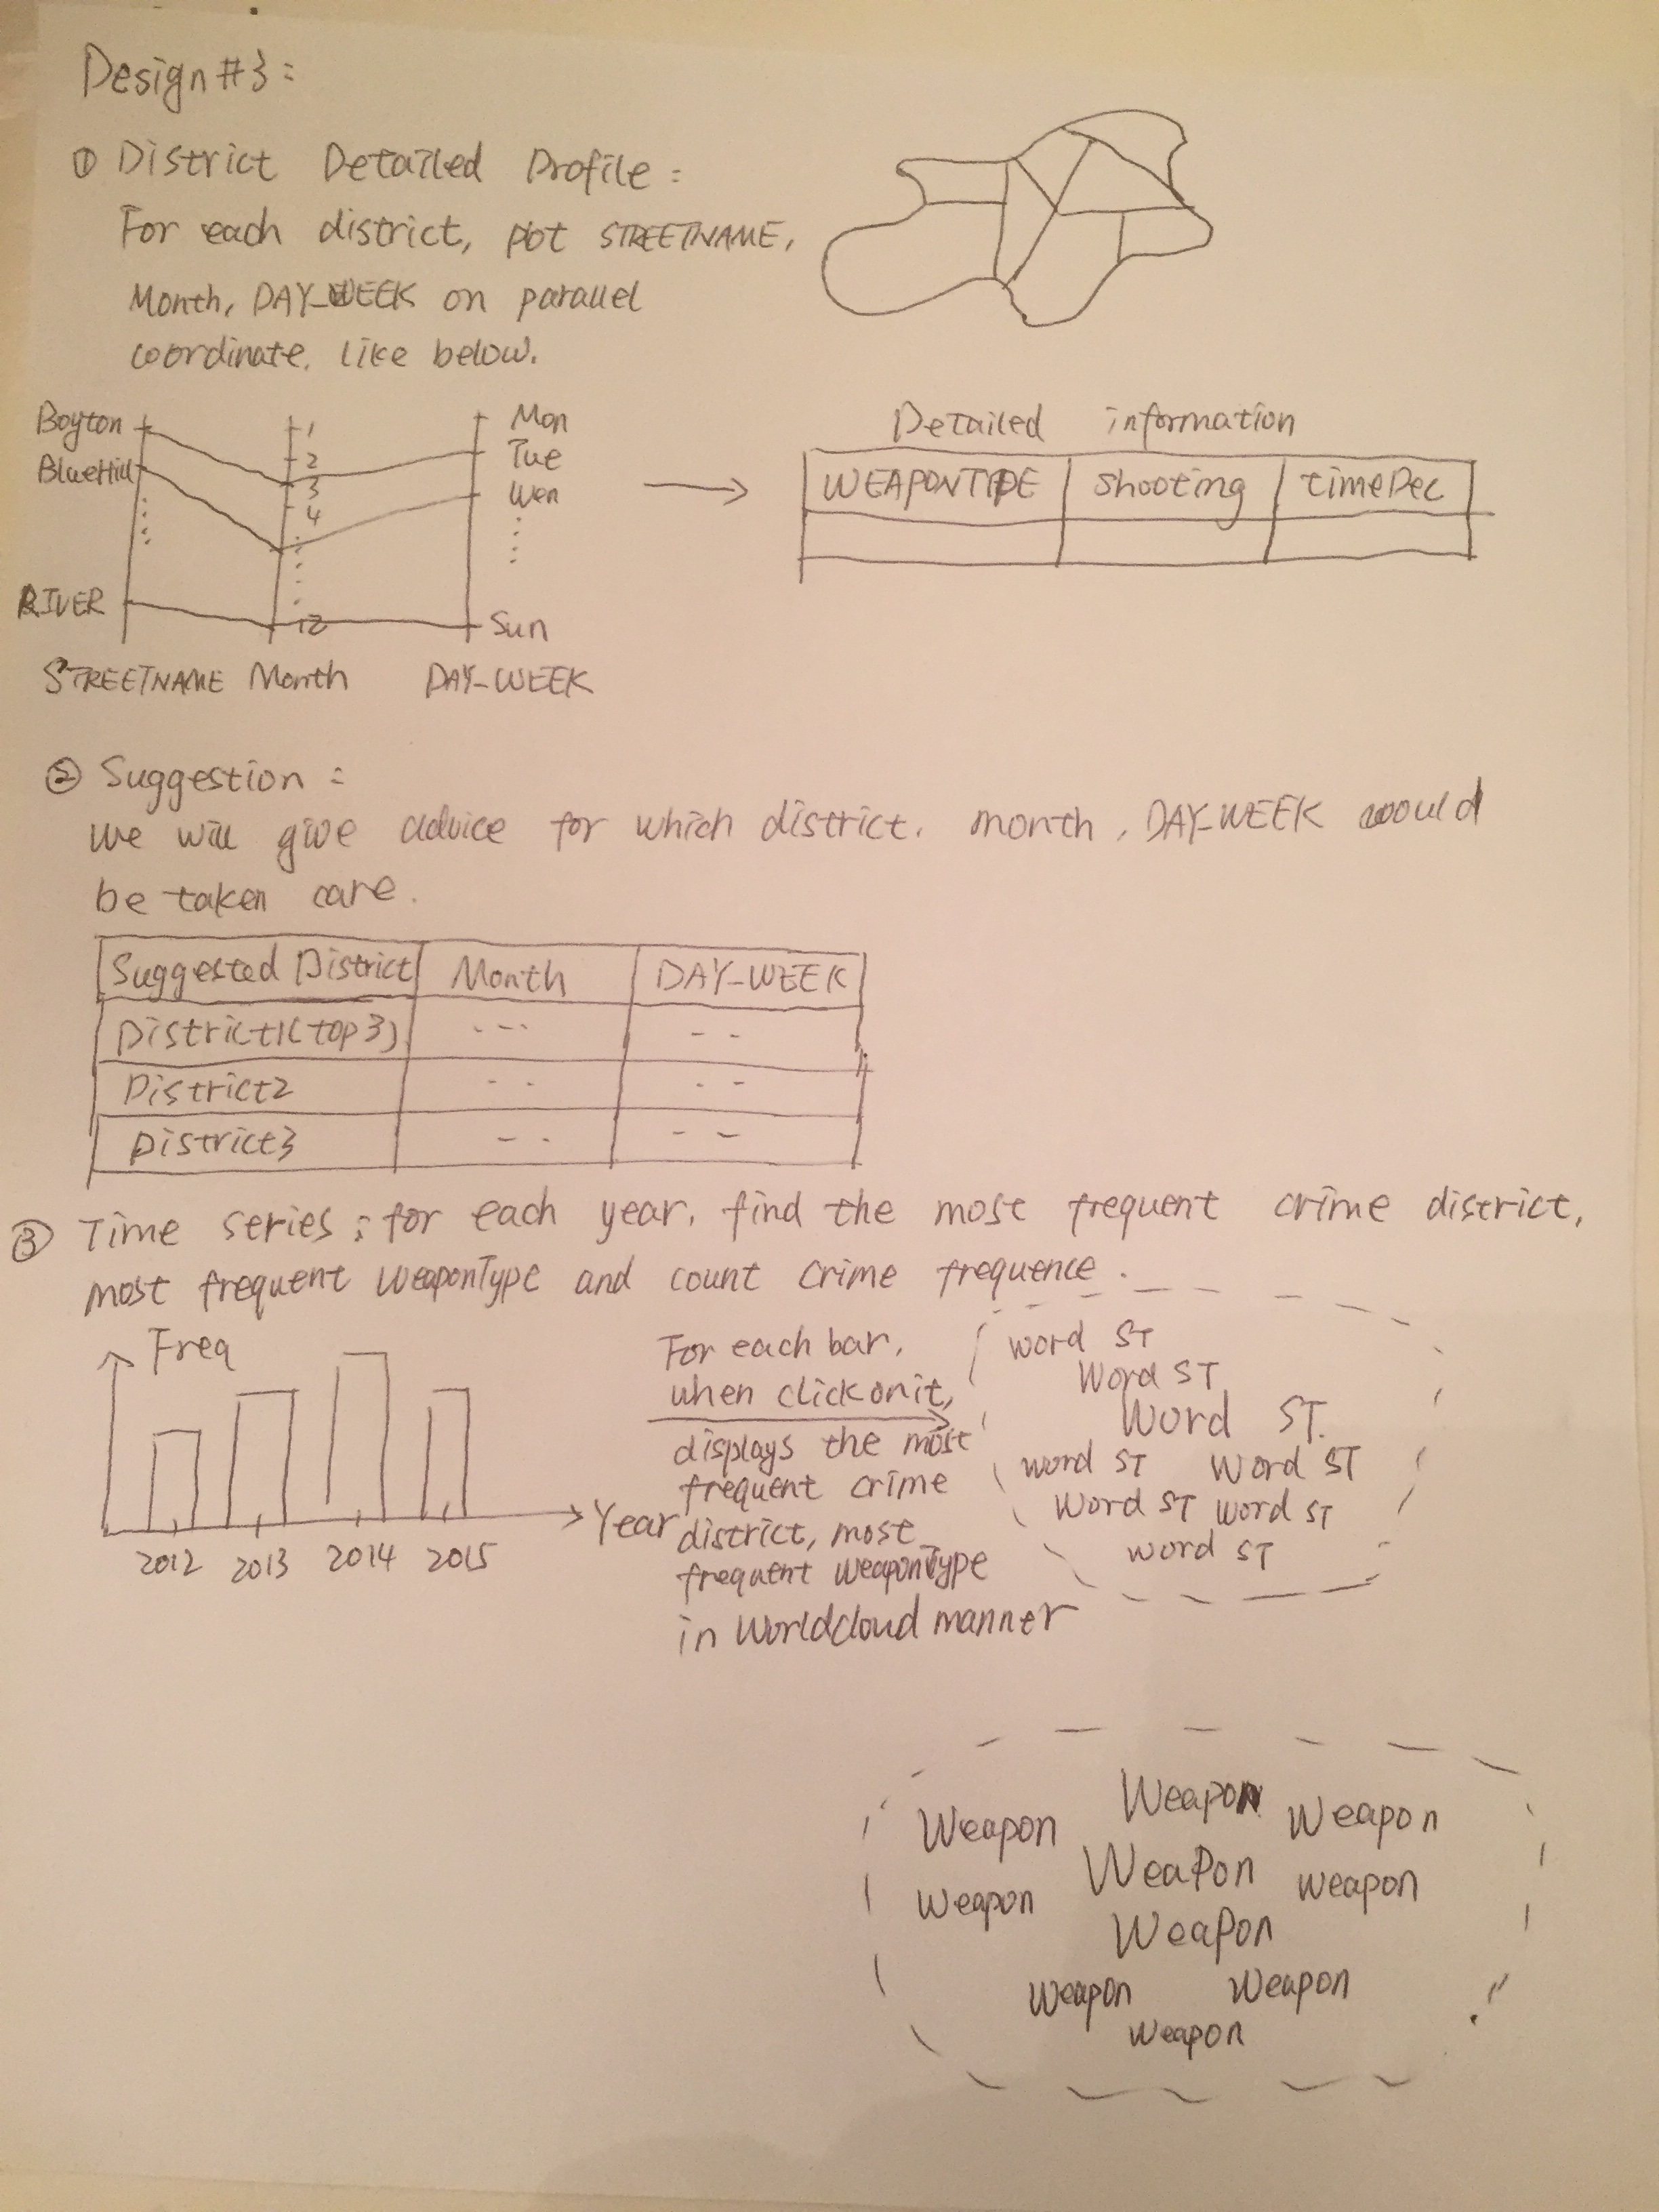 Design #3:
① District Detailed Profile:
For each district, plot STREETNAME,
Month, DAY_WEEK on parallel
coordinate. Like below.
Boyton
BlueHill
RIVER
1
2
3
4
12
Mon
Tue
Wen
Sun
STREETNAME Month DAY_WEEK
Detailed information
WEAPONTYPE shooting timeDec
② Suggestion:
We will give advice for which district, month, DAY_WEEK would
be taken care.
Suggested District Month DAY_WEEK
District1(top3) --- --
District2 -- --
District3 -- --
③ Time series: for each year, find the most frequent crime district,
most frequent WeaponType and count crime frequence.
Freq
2012 2013 2014 2015
Year
For each bar,
when click on it,
displays the most
frequent crime
district, most
frequent WeaponType
in Worldcloud manner
word ST
Word ST
Word ST.
word ST Word ST
Word ST Word ST
word ST
Weapon Weapon Weapon
Weapon Weapon Weapon
Weapon
Weapon Weapon
Weapon